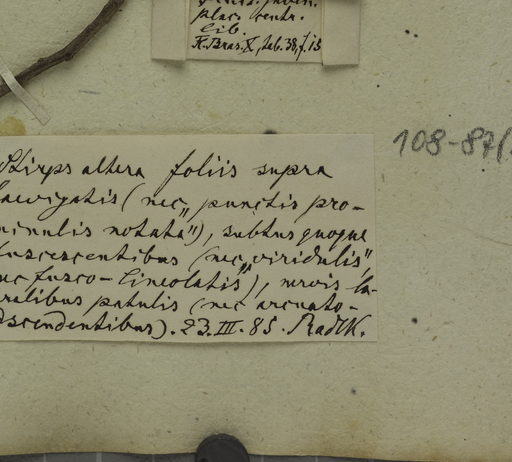 plac. centr.
lib.
Fl. Bras. X, tab. 38, f. 15
108-87/
Stirps altera foliis supra
laevigatis (nec „punctis pro-
minulis notata"), subtus quoque
fuscescentibus (nec „viridulis",
nec fusco-lineolatis"), nervis la-
teralibus patulis (nec arcuato-
adscendentibus). 23.III.85. Radlk.